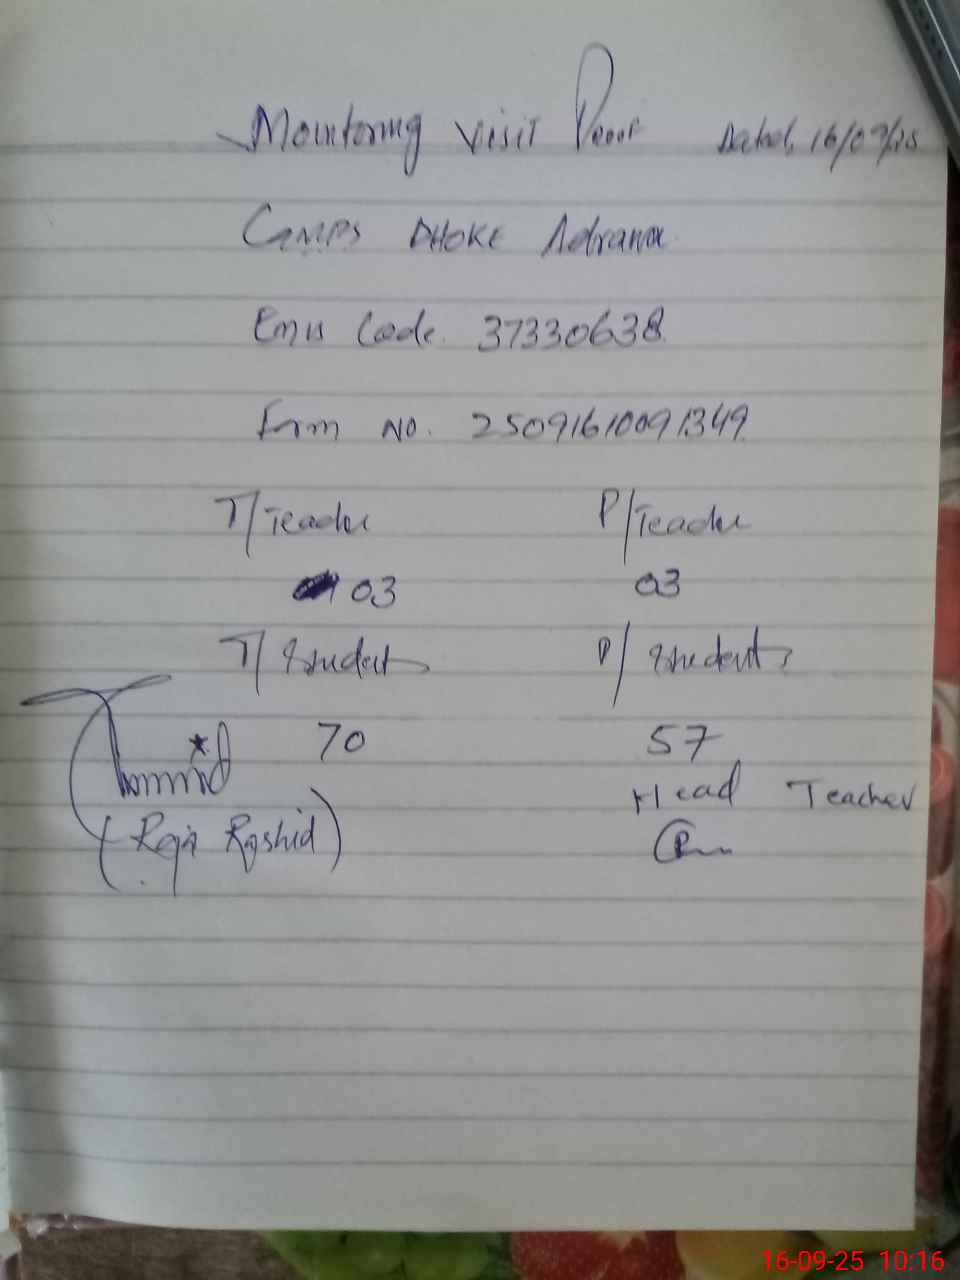 Monitoring Visit Proof Dated, 16/09/25
GMPS DHOKE Adrana
Emis Code. 37330638
Form NO. 25091610091349
T/Teacher P/Teacher
03 03
T/Students P/Students
70 57
Head Teacher
(Raja Rashid)
16-09-25 10:16